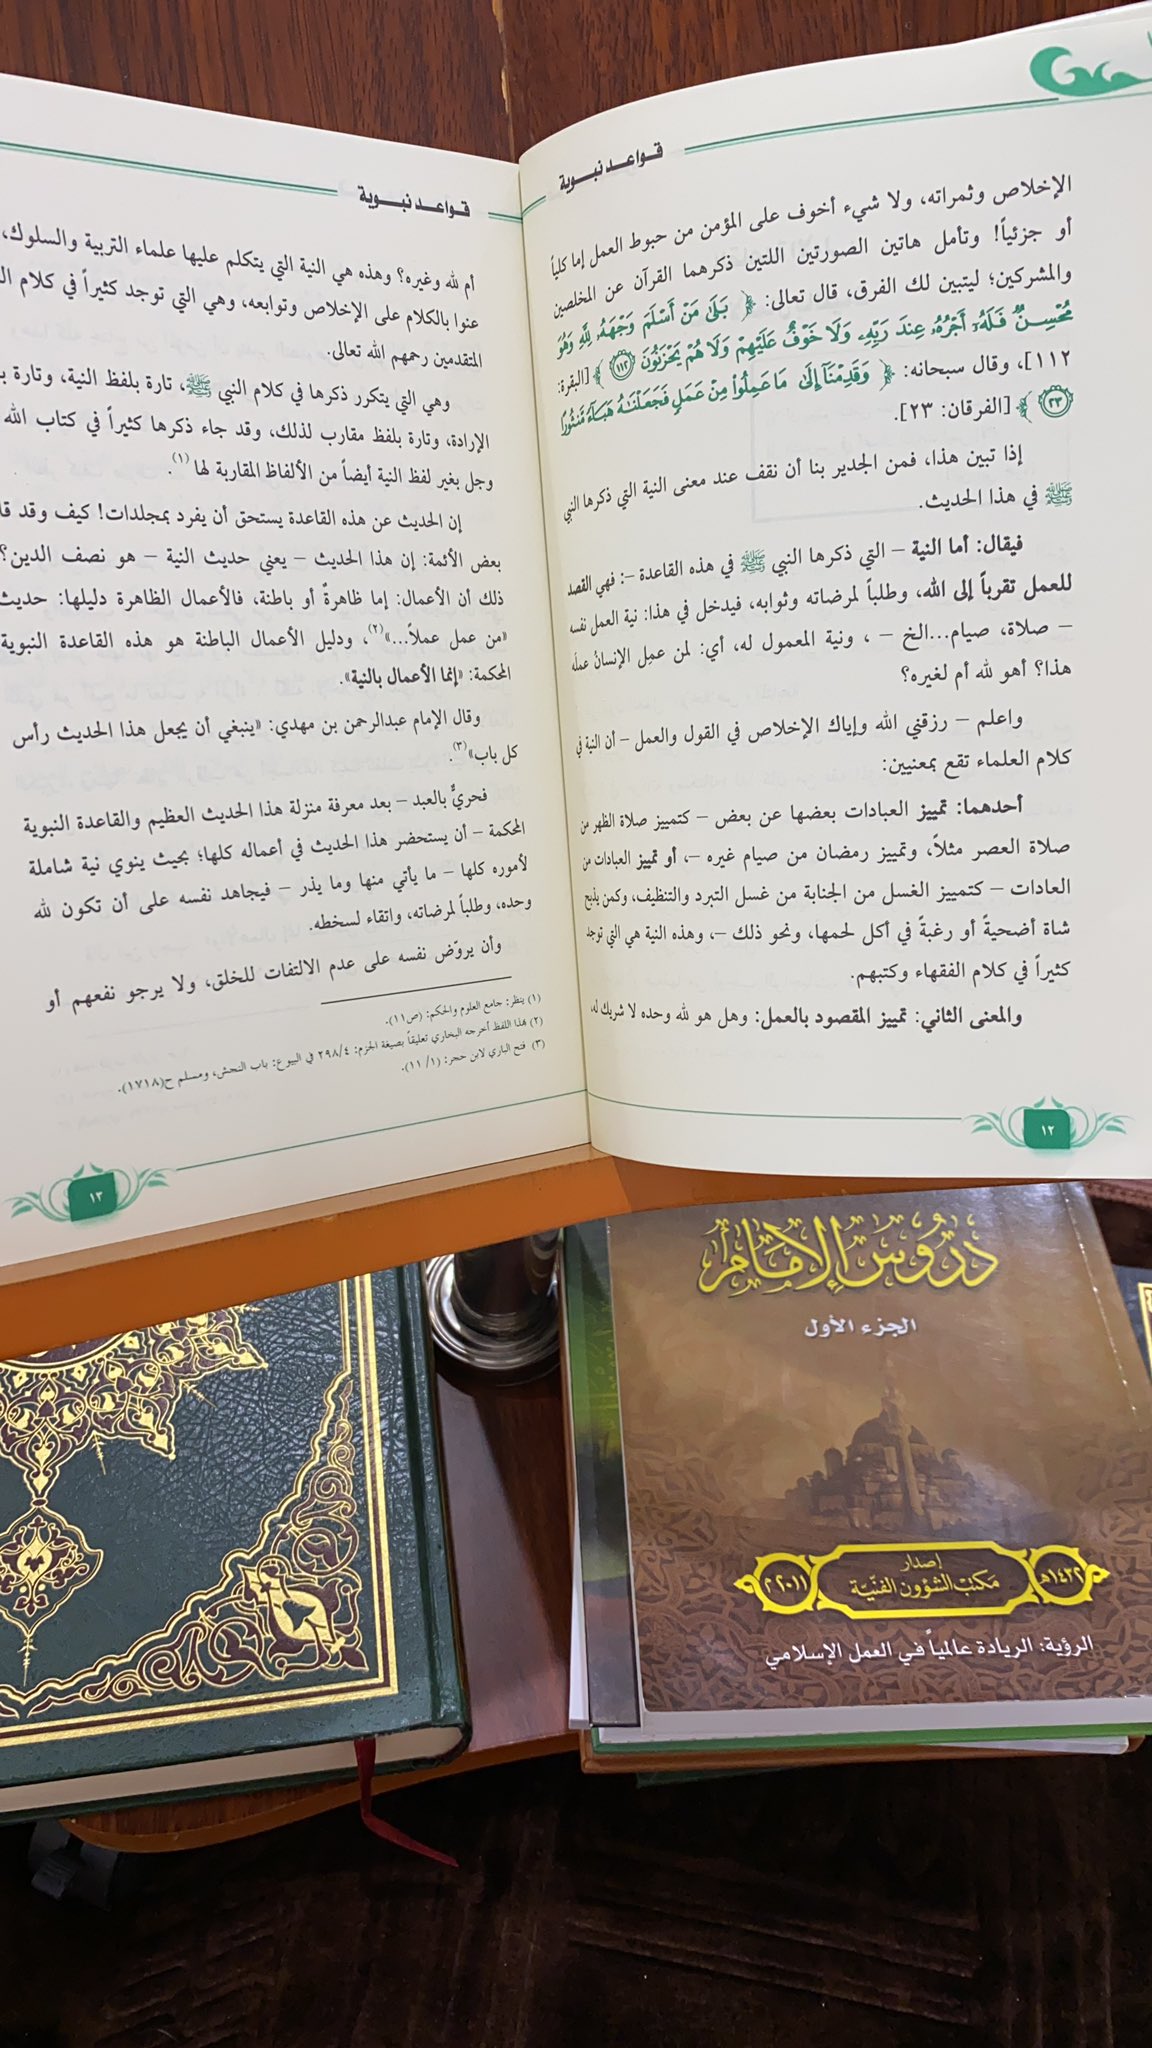 قواعد نبوية
الإخلاص وثمراته، ولا شيء أخوف على المؤمن من حبوط العمل إما كلياً
أو جزئياً! وتأمل هاتين الصورتين اللتين ذكرهما القرآن عن المخلصين
والمشركين؛ ليتبين لك الفرق، قال تعالى: ﴿ بَلَىٰ مَنْ أَسْلَمَ وَجْهَهُۥ لِلَّهِ وَهُوَ
مُحْسِنٌ فَلَهُۥٓ أَجْرُهُۥ عِندَ رَبِّهِۦ وَلَا خَوْفٌ عَلَيْهِمْ وَلَا هُمْ يَحْزَنُونَ ١١٢ ﴾ [البقرة:
١١٢]، وقال سبحانه: ﴿ وَقَدِمْنَآ إِلَىٰ مَا عَمِلُوا۟ مِنْ عَمَلٍ فَجَعَلْنَـٰهُ هَبَآءً مَّنثُورًا
٢٣ ﴾ [الفرقان: ٢٣].
إذا تبين هذا، فمن الجدير بنا أن نقف عند معنى النية التي ذكرها النبي
ﷺ في هذا الحديث.
فيقال: أما النية – التي ذكرها النبي ﷺ في هذه القاعدة –: فهي القصد
للعمل تقرباً إلى الله، وطلباً لمرضاته وثوابه، فيدخل في هذا: نية العمل نفسه
– صلاة، صيام...الخ – ، ونية المعمول له، أي: لمن عمِل الإنسانُ عملَه
هذا؟ أهو لله أم لغيره؟
واعلم – رزقني الله وإياك الإخلاص في القول والعمل – أن النية في
كلام العلماء تقع بمعنيين:
أحدهما: تمييز العبادات بعضها عن بعض – كتمييز صلاة الظهر من
صلاة العصر مثلاً، وتمييز رمضان من صيام غيره –، أو تمييز العبادات من
العادات – كتمييز الغسل من الجنابة من غسل التبرد والتنظيف، وكمن يذبح
شاة أضحيةً أو رغبةً في أكل لحمها، ونحو ذلك –، وهذه النية هي التي توجد
كثيراً في كلام الفقهاء وكتبهم.
والمعنى الثاني: تمييز المقصود بالعمل: وهل هو لله وحده لا شريك له،
١٢
قواعد نبوية
أم لله وغيره؟ وهذه هي النية التي يتكلم عليها علماء التربية والسلوك،
عنوا بالكلام على الإخلاص وتوابعه، وهي التي توجد كثيراً في كلام
المتقدمين رحمهم الله تعالى.
وهي التي يتكرر ذكرها في كلام النبي ﷺ، تارة بلفظ النية، وتارة
الإرادة، وتارة بلفظ مقارب لذلك، وقد جاء ذكرها كثيراً في كتاب الله
وجل بغير لفظ النية أيضاً من الألفاظ المقاربة لها (١).
إن الحديث عن هذه القاعدة يستحق أن يفرد بمجلدات! كيف وقد
بعض الأئمة: إن هذا الحديث – يعني حديث النية – هو نصف الدين؟
ذلك أن الأعمال: إما ظاهرةٌ أو باطنة، فالأعمال الظاهرة دليلها: حديث
«من عمل عملاً...»(٢)، ودليل الأعمال الباطنة هو هذه القاعدة النبوية
المحكمة: «إنما الأعمال بالنية».
وقال الإمام عبدالرحمن بن مهدي: «ينبغي أن يجعل هذا الحديث رأس
كل باب»(٣).
فحريٌّ بالعبد – بعد معرفة منزلة هذا الحديث العظيم والقاعدة النبوية
المحكمة – أن يستحضر هذا الحديث في أعماله كلها؛ بحيث ينوي نية شاملة
لأموره كلها – ما يأتي منها وما يذر – فيجاهد نفسه على أن تكون لله
وحده، وطلباً لمرضاته، واتقاء لسخطه.
وأن يروّض نفسه على عدم الالتفات للخلق، ولا يرجو نفعهم أو
(١) ينظر: جامع العلوم والحكم: (ص١١).
(٢) هذا اللفظ أخرجه البخاري تعليقاً بصيغة الجزم: ٢٩٨/٤ في البيوع: باب النجش، ومسلم ح(١٧١٨).
(٣) فتح الباري لابن حجر: (١/ ١١).
١٣
دروس الإمام
الجزء الأول
إصدار
١٤٣٢هـ مكتب الشؤون الفنيّة ٢٠١١م
الرؤية: الريادة عالمياً في العمل الإسلامي